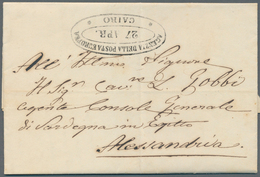 AGENZIA DELLA POSTA EUROPEA
27 APR.
CAIRO
All' Illmo Signore
Il Sigr Cavre L. Zobbi
Regente Console Generale
di Sardegna in Egitto
Alessandria